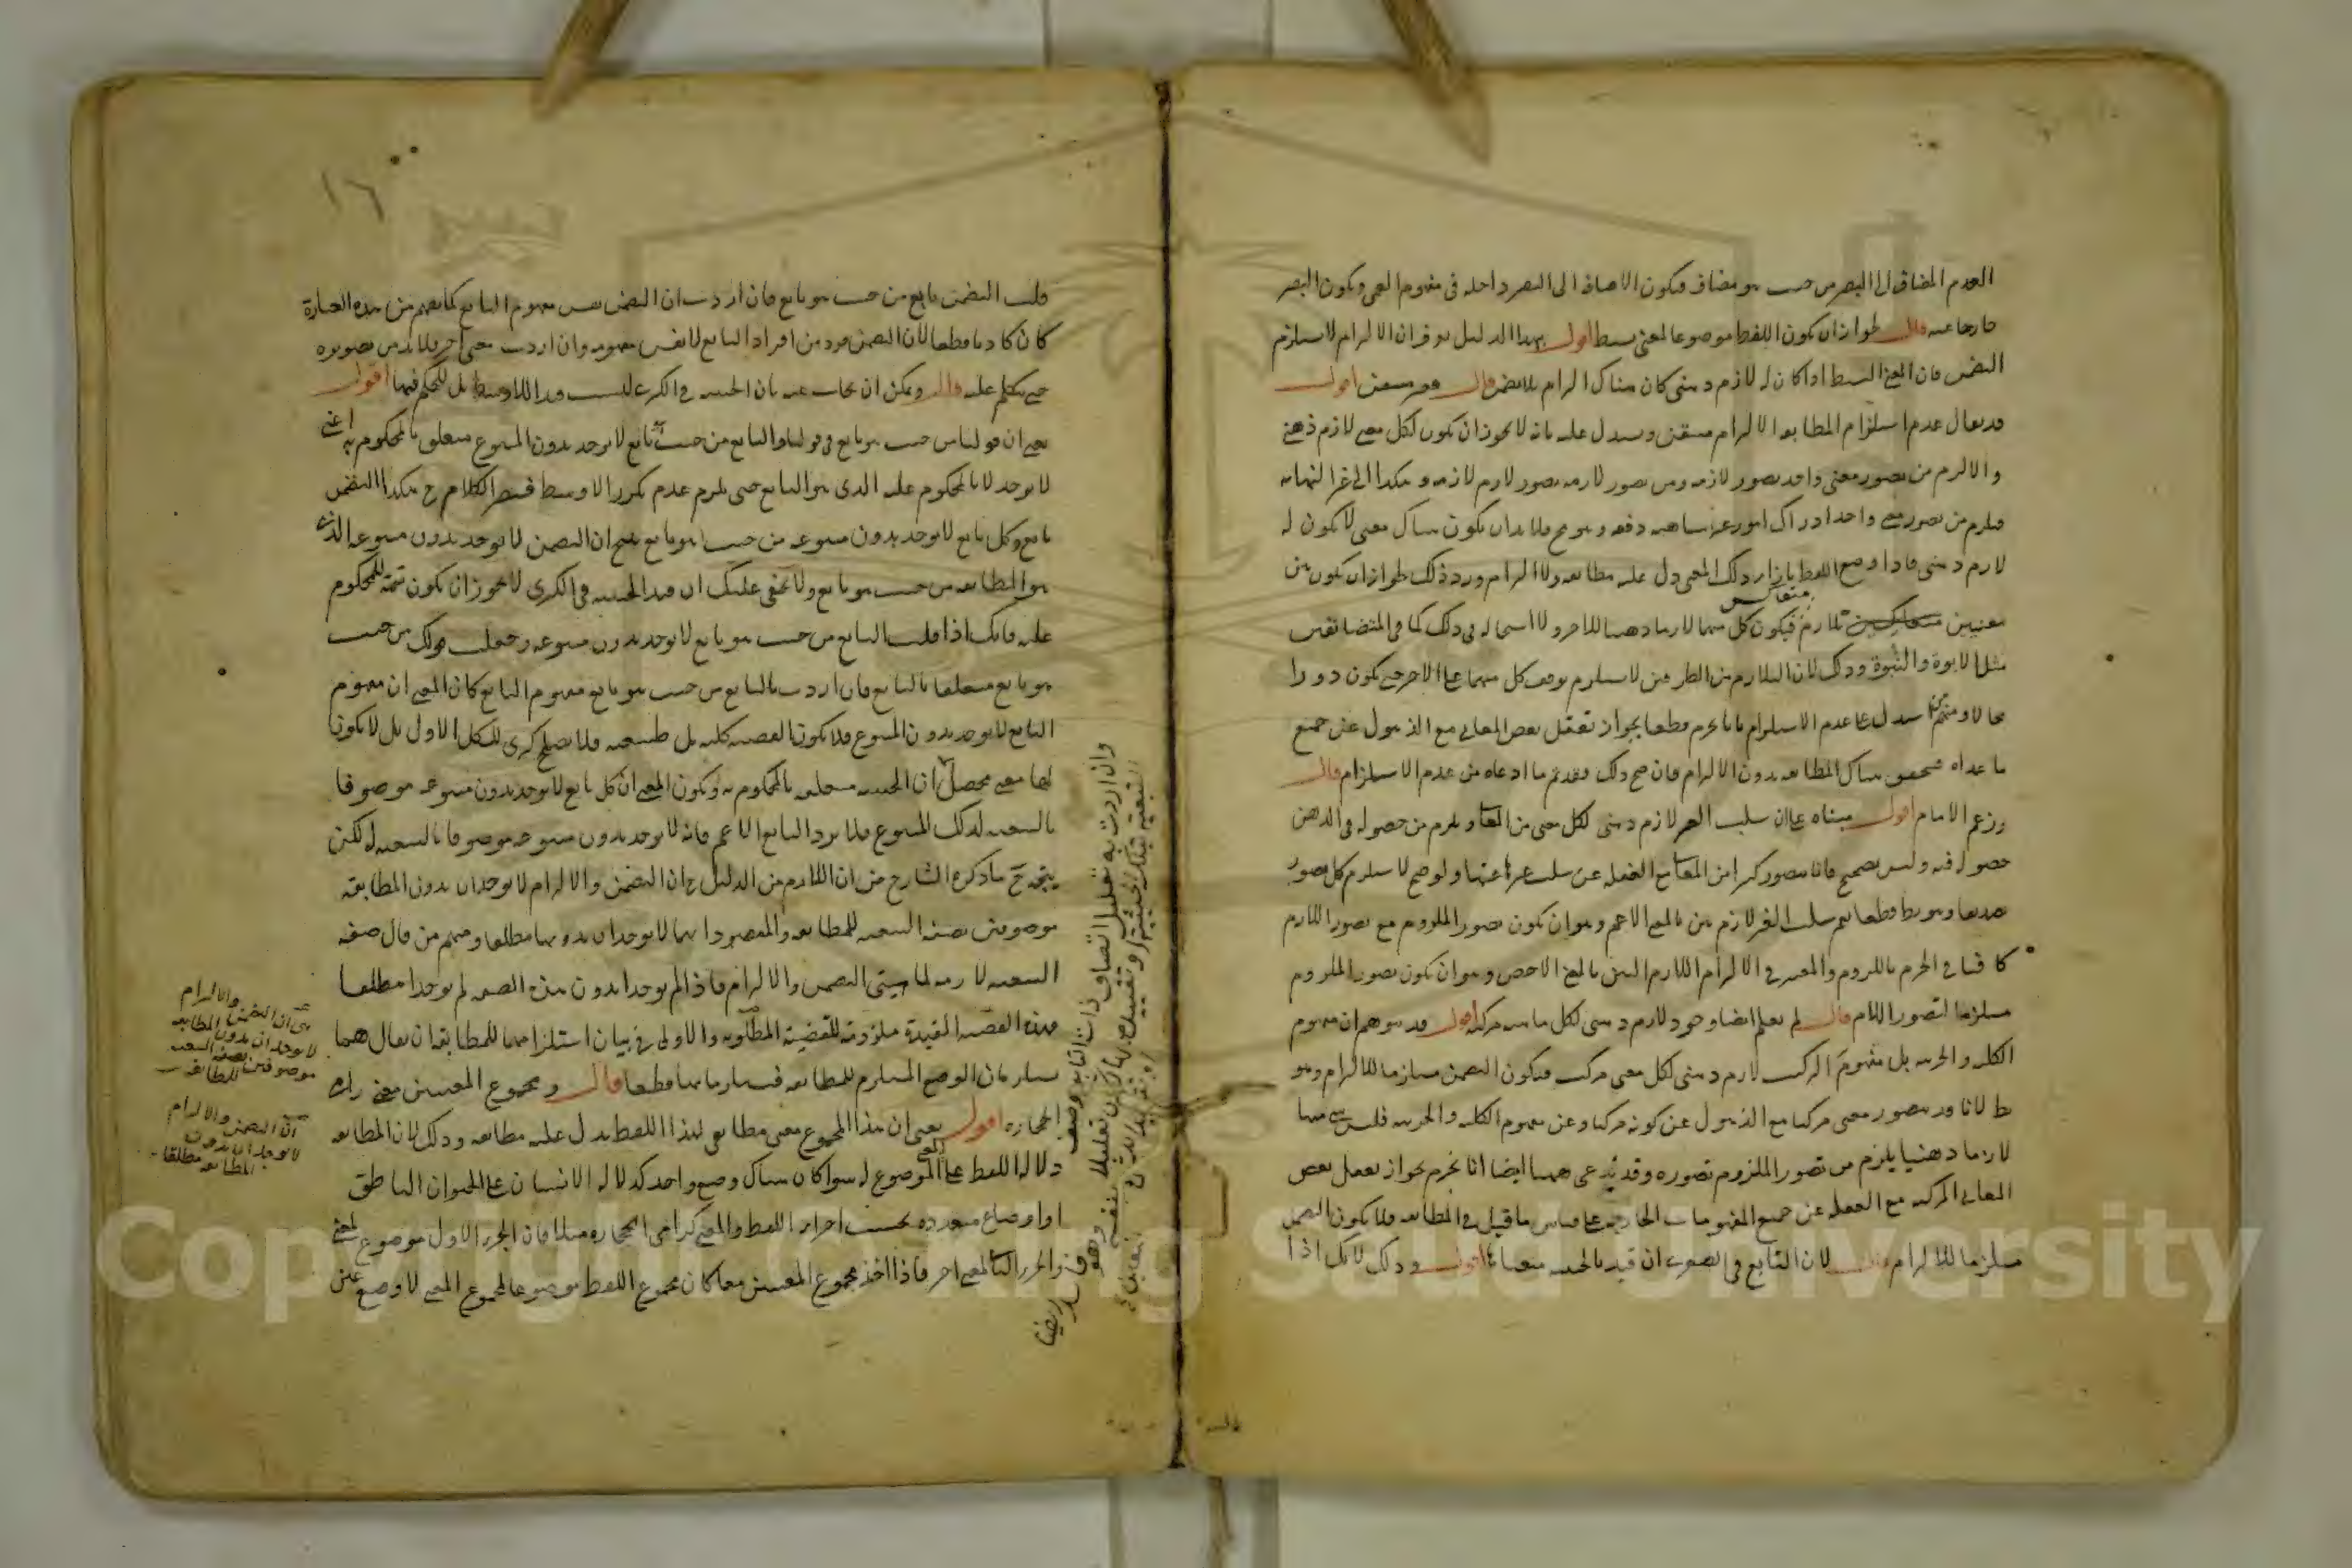 العدم المضاف الى البصر من حيث هو مضاف فيكون الاضافة الى البصر داخلة في مفهوم العمى ويكون البصر
خارجا عنه قال لجواز ان يكون اللفظ موضوعا لمعنى بسيط اقول بهذا الدليل يعرف ان الالتزام لا يستلزم
التضمن فان المعنى البسيط اذا كان له لازم ذهني كان هناك التزام بلا تضمن قال فغير متيقن اقول
قد يقال عدم استلزام المطابقة الالتزام متيقن ويستدل عليه بانه لا يجوز ان يكون لكل معنى لازم ذهني
والا لزم من تصور معنى واحد تصور لازمه ومن تصور لازمه تصور لازم لازمه وهكذا الى غير النهاية
فيلزم من تصور معنى واحد ادراك امور غير متناهية دفعة وهو مح فلا بد ان يكون هناك معنى لا يكون له
لازم ذهني فاذا وضع اللفظ بازاء ذلك المعنى دل عليه مطابقة ولا التزام ورد ذلك بجواز ان يكون بين
معنيين متعاكس تلازم فيكون كل منهما لازما ذهنيا للاخر ولا استحالة في ذلك كما في المتضائفين
مثل الابوة والبنوة وذلك لان التلازم من الطرفين لا يستلزم توقف كل منهما على الاخر حتى يكون دورا
محالا ومنهم من استدل على عدم الاستلزام بانا نجزم قطعا بجواز تعقل بعض المعاني مع الذهول عن جميع
ما عداه فتحقق هناك المطابقة بدون الالتزام فان صح ذلك فقد تم ما ادعاه من عدم الاستلزام قال
وزعم الامام اقول مبناه على ان سلب الغير لازم ذهني لكل معنى من المعاني ويلزم من حصوله في الذهن
حصوله فيه وليس بصحيح فانا نتصور كثيرا من المعاني مع الغفلة عن سلب غيرها عنها ولو صح لاستلزم كل تصور
تصديقا وهو بط قطعا نعم سلب الغير لازم بين بالمعنى الاعم وهو ان يكون تصور الملزوم مع تصور اللازم
كافيا في الجزم باللزوم والمعتبر في الالتزام اللازم البين بالمعنى الاخص وهو ان يكون تصور الملزوم
مستلزما لتصور اللازم قال لم يعلم ايضا وجود لازم ذهني لكل ماهية مركبة اقول قد يتوهم ان مفهوم
الكلية والجزئية بل مفهوم التركيب لازم ذهني لكل معنى مركب فيكون التضمن مستلزما للالتزام وهو
بط لانا قد نتصور معنى مركبا مع الذهول عن كونه مركبا وعن مفهوم الكلية والجزئية فليس شيء منها
لازما ذهنيا يلزم من تصور الملزوم تصوره وقد يدعى ههنا ايضا انا نجزم بجواز تعقل بعض
المعاني المركبة مع الغفلة عن جميع المفهومات الخارجية على قياس ما قيل في المطابقة فلا يكون التضمن
مستلزما للالتزام قال لان التابع في الصغرى ان قيد بالحيثية منعناها اقول وذلك لانك اذا
١٦
قلت التضمن تابع من حيث هو تابع فان اردت ان التضمن نفس مفهوم التابع كما يفهم من هذه العبارة
كان كاذبا قطعا لان التضمن فرد من افراد التابع لا نفس مفهومه وان اردت معنى اخر فلا بد من تصويره
حتى يتكلم عليه قال ويمكن ان يجاب عنه بان الحيثية في الكبرى ليست قيدا للاوسط بل للحكم فيها اقول
يعني ان قولنا من حيث هو تابع في قولنا والتابع من حيث هو تابع لا يوجد بدون المتبوع متعلق بالمحكوم به اعني
لا يوجد لا بالمحكوم عليه الذي هو التابع حتى يلزم عدم تكرر الاوسط فيصير الكلام ح هكذا التضمن
تابع وكل تابع لا يوجد بدون متبوعه من حيث هو تابع ينتج ان التضمن لا يوجد بدون متبوعه الذي
هو المطابقة من حيث هو تابع ولا يخفى عليك ان قيد الحيثية في الكبرى لا يجوز ان يكون تتمة للمحكوم
عليه فانك اذا قلت التابع من حيث هو تابع لا يوجد بدون متبوعه وجعلت قولك من حيث
هو تابع متعلقا بالتابع فان اردت بالتابع من حيث هو تابع مفهوم التابع كان المعنى ان مفهوم
التابع لا يوجد بدون المتبوع فلا يكون القضية كلية بل طبيعية فلا يصلح كبرى للشكل الاول بل لا يكون
لها معنى محصل ان الحيثية متعلقة بالمحكوم به ويكون المعنى ان كل تابع لا يوجد بدون متبوعه موصوفا
بالتبعية لذلك المتبوع فلا يرد التابع الاعم فانه لا يوجد بدون متبوعه موصوفا بالتبعية له لكن
يتجه ح ما ذكره الشارح من ان اللازم من الدليل ح ان التضمن والالتزام لا يوجدان بدون المطابقة
موصوفين بصفة التبعية للمطابقة والمقصود انهما لا يوجدان بدونها مطلقا ومنهم من قال صفة
التبعية لازمة لماهيتي التضمن والالتزام فاذا لم يوجدا بدون هذه الصفة لم يوجدا مطلقا
فهذه القضية المقيدة ملزومة للقضية المطلوبة والاولى في بيان استلزامهما للمطابقة ان يقال هما
يستلزمان الوضع المستلزم للمطابقة فيستلزمانها قطعا قال ومجموع المعنيين معنى رامي
الحجارة اقول يعني ان هذا المجموع معنى مطابقي لهذا اللفظ يدل عليه مطابقة وذلك لان المطابقة
دلالة اللفظ على المعنى الموضوع له سواء كان هناك وضع واحد كدلالة الانسان على الحيوان الناطق
او اوضاع متعددة بحسب اجزاء اللفظ والمعنى كرامي الحجارة مثلا فان الجزء الاول موضوع لمعنى
والجزء الثاني لمعنى اخر فاذا اخذ مجموع المعنيين معا كان مجموع اللفظ موضوعا لمجموع المعنى لا وضع عين
اي ان التضمن والالتزام
لا يوجدان بدون المطابقة
موصوفين بصفة التبعية
للمطابقة
اي ان التضمن والالتزام
لا يوجدان بدون
المطابقة مطلقا
وان اردت به تعليل اتصاف ذات التابع بوصف